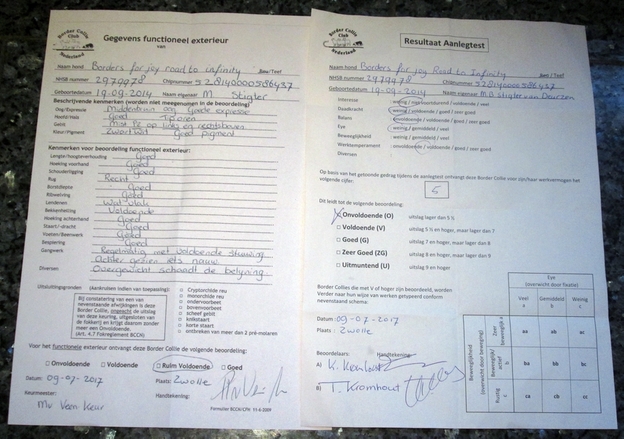 Border Collie
Club
Nederland
Gegevens functioneel exterieur
van
Naam hond Borders for joy road to infinity Reu/Teef
NHSB nummer 2979978 Chipnummer 528140000586437
Geboortedatum 19-09-2014 Naam eigenaar M. Stigter
Beschrijvende kenmerken (worden niet meegenomen in de beoordeling)
Oog/Expressie Middenbruin oog Goede expressie
Hoofd/Hals Goed Tiporen
Gebit Mist P2 op links en rechtsboven
Kleur/Pigment Zwart wit Goed pigment
Kenmerken voor beoordeling functioneel exterieur:
Lengte/hoogteverhouding Goed
Hoeking voorhand Goed
Schouderligging Goed
Rug Recht
Borstdiepte Goed
Ribwelving Goed
Lendenen Wat vlak
Bekkenstelling Voldoende
Hoeking achterhand Goed
Staart/-dracht Goed
Voeten/Beenwerk Goed
Bespiering Goed
Gangwerk Regelmatig met voldoende stuwing
Achter gezien iets nauw
Diversen: Overgewicht schaadt de belijning
Uitsluitingsgronden (aankruisen indien van toepassing):
Bij constatering van een van
nevenstaande afwijkingen is deze
Border Collie, ongeacht de uitslag
van deze keuring, uitgesloten van
de fokkerij en krijgt daarom zonder
meer een Onvoldoende.
(Art. 4.7 Fokreglement BCCN)
□ Cryptorchide reu
□ monorchide reu
□ ondervoorbeet
□ bovenvoorbeet
□ scheef gebit
□ knikstaart
□ korte staart
□ ontbreken van meer dan 2 pré-molaren
Voor het functionele exterieur ontvang deze Border Collie de volgende beoordeling:
□ Onvoldoende □ Voldoende □ Ruim Voldoende □ Goed
Datum: 09-07-2017 Plaats: Zwolle
Keurmeester: Handtekening:
Mv Van Keur
Formulier BCCN/CFN 11-4-2009
Border Collie
Club
Nederland
Resultaat Aanlegtest
Naam hond Borders for joy Road to Infinity Reu/Teef
NHSB nummer 2979978 Chipnummer 528140000586437
Geboortedatum 19-09-2014 Naam eigenaar M.B Stigter van Deurzen
Interesse weinig / voldoende / veel
Daadkracht weinig / voldoende / goed / zeer goed
Balans onvoldoende / voldoende / goed / zeer goed
Eye weinig / gemiddeld / veel
Beweeglijkheid weinig / gemiddeld / veel
Werktemperament onvoldoende / voldoende / goed / zeer goed
Diversen
Op basis van het getoonde gedrag tijdens de aanlegtest ontvang deze Border Collie voor zijn/haar werkvermogen het
volgende cijfer:
5
Dit leidt tot de volgende beoordeling:
X Onvoldoende (O) uitslag lager dan 5 ½
□ Voldoende (V) uitslag 5 ½ en hoger, maar lager dan 7
□ Goed (G) uitslag 7 en hoger, maar lager dan 8
□ Zeer Goed (ZG) uitslag 8 en hoger, maar lager dan 9
□ Uitmuntend (U) uitslag 9 en hoger
Border Collies die met V of hoger zijn beoordeeld, worden
Verder naar hun wijze van werken getypeerd conform
nevenstaand schema.
Datum: 09-07-2017
Plaats: Zwolle
Beoordelaars: Handtekening:
A)
B) T. Kromhout
Eye
(overwicht door fixatie)
Veel a Gemiddeld b Weinig c
Beweeglijkheid
(overwicht door beweging)
Zeer beweeglijk a aa ab ac
b ba bb bc
Rustig c ca cb cc